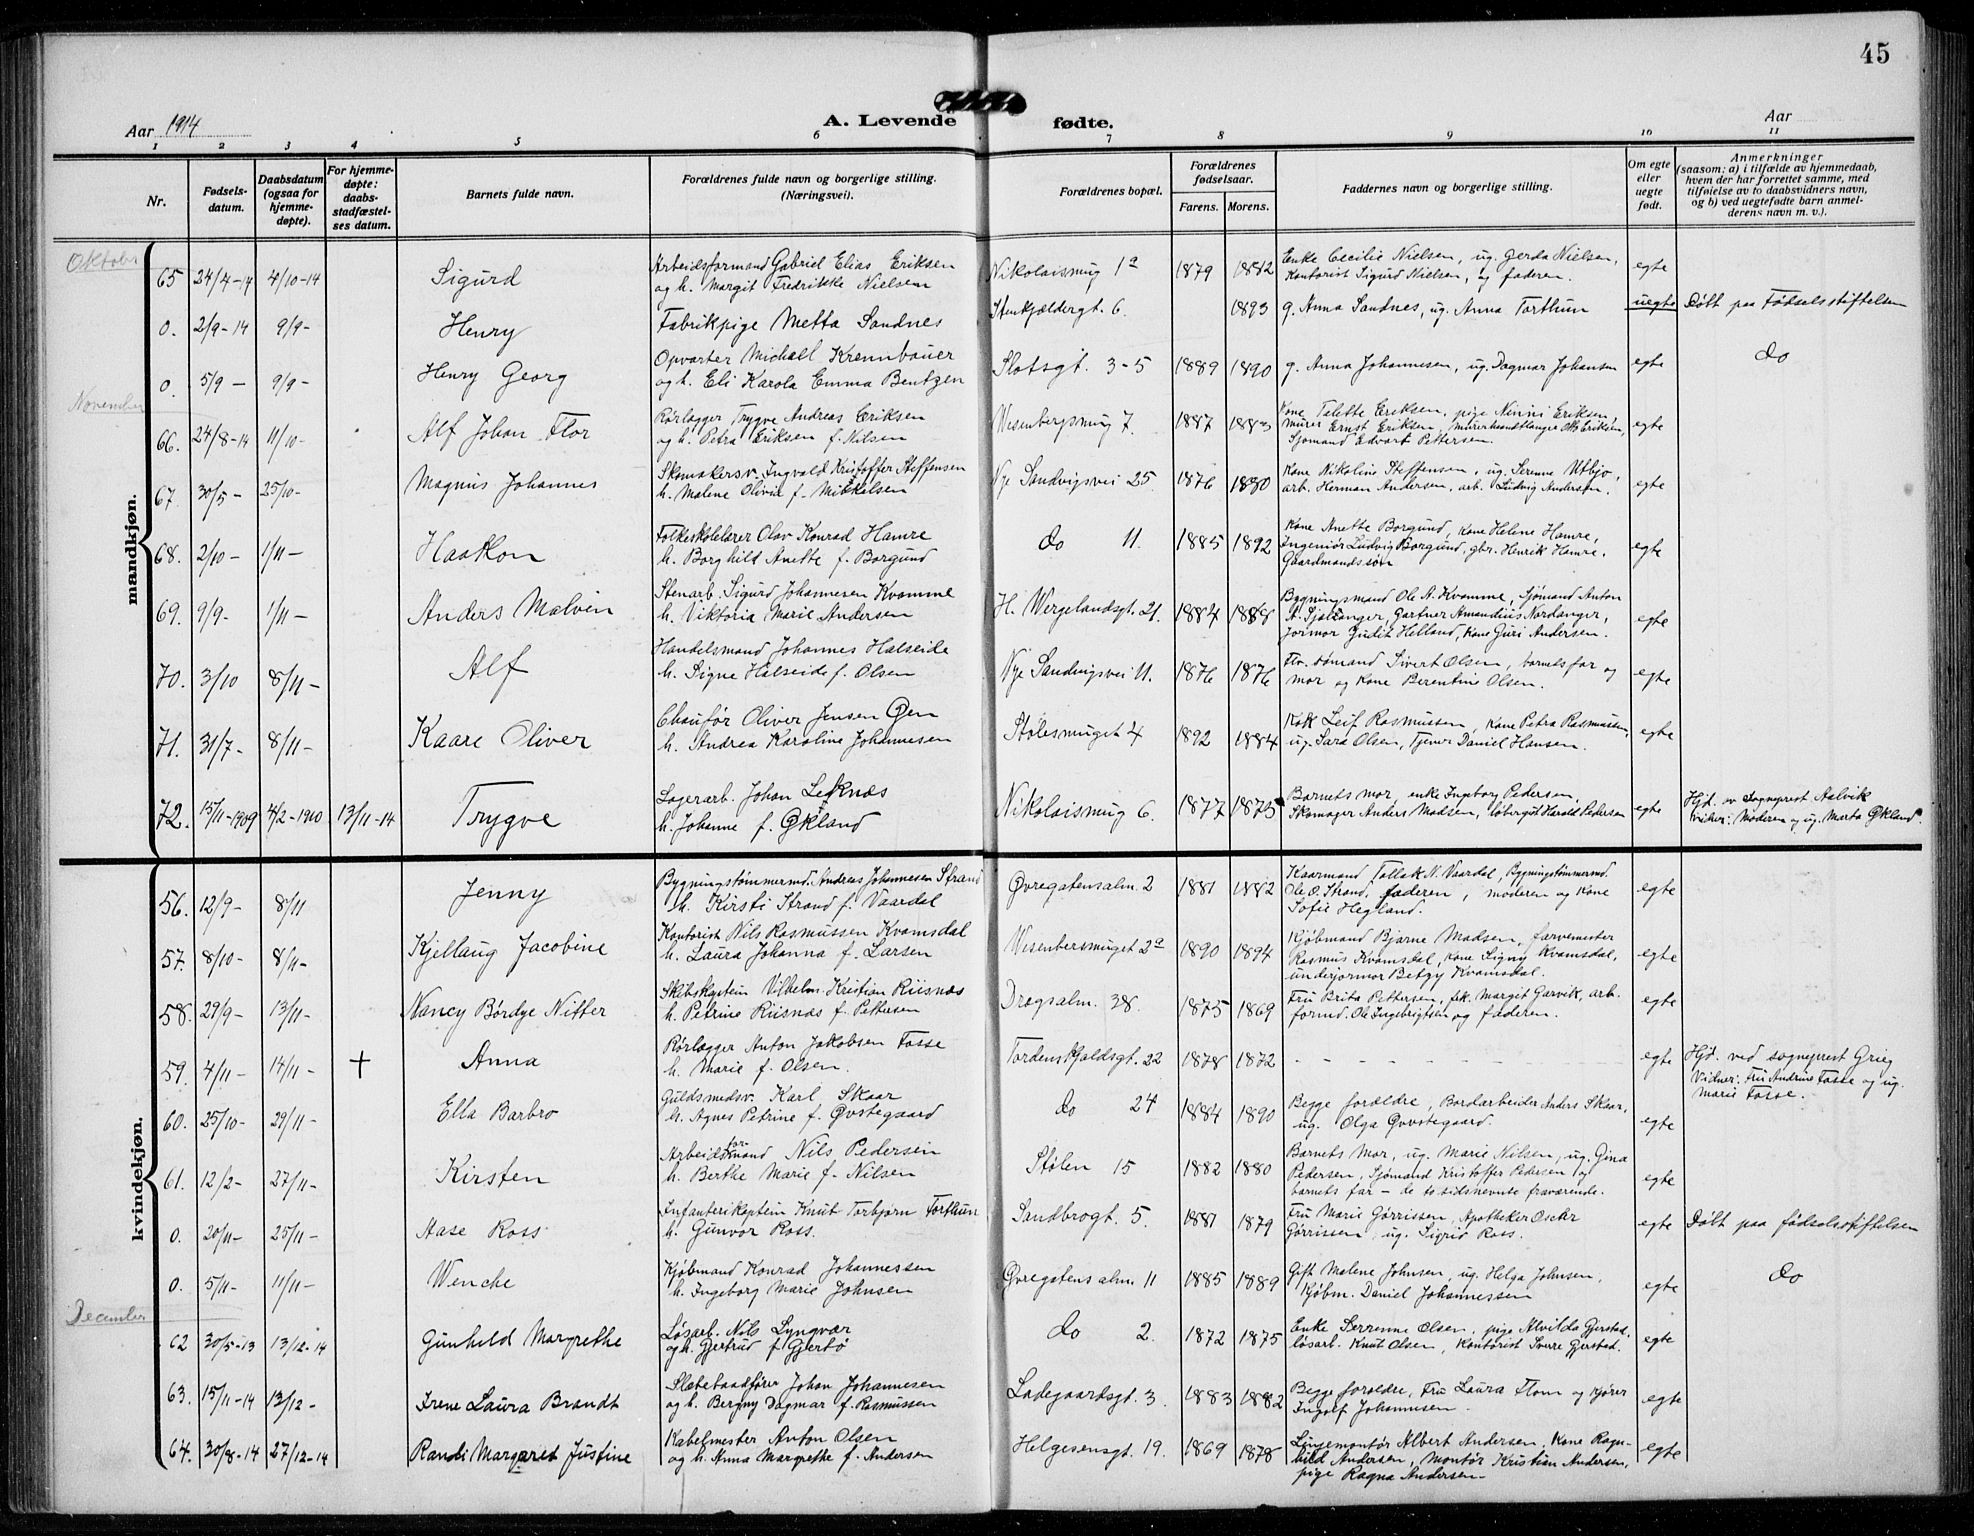 45
Aar 1914
A. Levende fødte.
Aar
1 2 3 4 5 6 7 8 9 10 11
Nr.
Fødsels-
datum.
Daabsdatum
(ogsaa for
hjemme-
døpte).
For hjemme-
døpte:
daabs-
stadfæstel-
ses datum.
Barnets fulde navn.
Forældrenes fulde navn og borgerlige stilling.
(Næringsvei).
Forældrenes bopæl.
Forældrenes
fødselsaar.
Farens. Morens.
Faddernes navn og borgerlige stilling.
Om egte
eller
uegte
født.
Anmerkninger
(saasom: a) i tilfælde av hjemmedaab,
hvem der har forrettet samme, med
tilføielse av to daabsvidners navn,
og b) ved uegtefødte barn anmel-
derens navn m. v.).
Oktober
mandkjøn.
65 24/7-14 4/10-14 Sigurd
Arbeidsformand Gabriel Elias Eriksen
og h. Margit Fredrikke Nielsen
Nikolaismug 1a 1879 1882
Enke Cecilie Nielsen, ug. Gerda Nielsen,
Kontorist Sigurd Nielsen, og faderen.
egte
0. 2/9-14 9/9- Henry
Fabrikpige Metta Sandnes
Stenkjældergt. 6. 1893
g. Anna Sandnes, ug. Anna Torthun
uegte
Døbt paa Fødselsstiftelsen
0. 5/9- 9/9- Henry Georg
Opvarter Michall Krennbauer
og h. Eli Karola Emma Bentzen
Slotsgt. 3-5 1889 1890
g. Anna Johannesen, ug. Dagmar Johansen
egte
do
November
66. 24/8-14 11/10- Alf Johan Flor
Rørlægger Trygve Andreas Eriksen
og h. Petra Eriksen f. Nilsen
Wesenbergsmug 7. 1887 1883
Kone Talette Eriksen, pige Ninni Eriksen,
murer Ernst Eriksen, murerhaandtlanger Ole Eriksen,
Sjømand Edvart Pettersen.
egte
67. 30/5- 25/10- Magnus Johannes
Skomakersv. Ingvald Kristoffer Steffensen
h. Malene Olivia f. Mikkelsen
Nye Sandvigsvei 25 1876 1880
Kone Nikoline Steffensen, ug. Serenne Utbjo,
arb. Herman Andersen, arb. Ludvig Andersen.
egte
68. 2/10- 1/11- Haakon
Folkeskolelærer Olav Konrad Hamre
h. Borghild Anette f. Borgund
do 11. 1885 1892
Kone Anette Borgund, Kone Helene Hamre,
Ingeniør Ludvig Borgund, gbr. Henrik Hamre,
Gaardmandssøn
egte
69. 9/9- 1/11- Anders Malvin
Stenarb. Sigurd Johannesen Kvamme
h. Viktoria Marie Andersen
H. Wergelandsgt. 21. 1884 1888
Bygningsmand Ole A. Kvamme, Sjømand Anton
Gartner Amandius Nordanger,
Jormor Judit Helland, Kone Guri Andersen.
egte
70. 3/10 8/11- Alf
Handelsmand Johannes Halseide
h. Signe Halseide f. Olsen
Nye Sandvigsvei 11. 1876 1876
Sivert Olsen, barnets far og
mor og Kone Berentine Olsen.
egte
71. 31/7- 8/11- Kaare Oliver
Chauffør Oliver Jensen Øen
h. Andrea Karoline Johannesen
Stølesmuget 4 1892 1884
Kok Leif Rasmussen, Kone Petra Rasmussen,
ug. Sara Olsen, Tjener Daniel Hansen.
egte
72. 15/11-1909 4/2-1910 13/11-14 Trygve
Lagerarb. Johan Leknæs
h. Johanne f. Økland
Nikolaismug 6. 1877 1875
Barnets mor, enke Ingeborg Pedersen,
Skomager Anders Madsen, løbergut Harald Pedersen
egte
Hjd. av Sogneprest Aalvik
Vidner: Moderen og ug. Marta Økland.
kvindekjøn.
56. 12/9- 8/11 Jenny
Bygningstømmermd. Andreas Johannesen Strand
h. Kirsti Strand f. Vaardal
Øvregatensalm. 2 1881 1882
Kaarmand Tollak N. Vaardal, Bygningstømmermd.
Ole O. Strand, faderen, moderen og Kone
Sofie Hegland.
egte
57. 8/10- 8/11- Kjellaug Jacobine
Kontorist Nils Rasmussen Kvamsdal
h. Laura Johanna f. Larsen
Wesenbersmuget 2a 1890 1894
Kjøbmand Bjarne Madsen, farvemester
Rasmus Kvamsdal, Kone Signy Kvamsdal,
underjormor Betgy Kvamsdal.
egte
58. 29/9- 13/11- Nancy Børdye Nitter
Skibskaptein Vilhelm Kristian Riisnæs
h. Petrine Riisnæs f. Pettersen
Dragsalm. 38. 1875 1869
Fru Brita Pettersen, frk. Margit Garvik, arb.
formd. Ole Ingebrigtsen og faderen.
egte
59. 4/11- 14/11- + Anna
Rørlægger Anton Jakobsen Fosse
h. Marie f. Olsen.
Tordenskjoldsgt. 22 1878 1872
- - - - -
egte
Hjd. ved sogneprest Grieg
Vidner: Fru Andrine Fosse og ug.
Marie Fosse.
60. 25/10- 29/11- Ella Barbro
Guldsmedsv. Karl Skaar
h. Agnes Petrine f. Øvstegaard
do 24 1884 1890
Begge forældre, Bordarbeider Anders Skaar,
ug. Olga Øvstegaard.
egte
61. 12/2- 27/11- Kirsten
Arbeidsformand Nils Pedersen
h. Berthe Marie f. Nilsen
Stølen 15 1882 1880
Barnets Mor, ug. Marie Nilsen, ug. Gina
Pedersen, Sjømand Kristoffer Pedersen og
barnets far - de to sidstnevnte fraværende.
egte
0. 20/11- 25/11- Aase Ross
Infanterikaptein Knut Torbjørn Torthun
h. Gunvor Ross.
Sandbrogt. 5. 1881 1879
Fru Marie Gørrissen, Apotheker Oscar
Gørrissen, ug. Sigrid Ross.
egte
Døbt paa fødselsstiftelsen
0. 5/11- 11/11- Wenche
Kjøbmand Konrad Johannessen
h. Ingeborg Marie Johnsen
Øvregatens alm. 11 1885 1889
Gift Malene Johnsen, ug. Helga Johnsen,
Kjøbm. Daniel Johannessen
egte
do
December
62 30/5-13 13/12-14 Gunhild Margrethe
Løsarb. Nils Lyngvær
og h. Gjertrud f. Gjertø
do 2. 1872 1875
Enke Serrenne Olsen, pige Alvilda Gjerstad,
løsarb. Knut Olsen, Kontorist Sverre Gjerstad.
egte
63. 15/11-14 13/12- Irene Laura Brandt
Slæbebaadfører Johan Johannesen
og h. Bergny Dagmar f. Rasmussen
Ladegaardsgt. 3. 1883 1882
Begge forældre, Fru Laura Flom og Kjører
Ingolf Johannesen.
egte
64. 30/8-14 27/12-14 Randi Margaret Justine
Kabelmester Anton Olsen
og h. Anna Margrethe f. Andersen
Helgesensgt. 19. 1869 1878
Linjemontør Albert Andersen, Kone Ragn-
hild Andersen, Montør Kristian Andersen,
pige Ragna Andersen.
egte